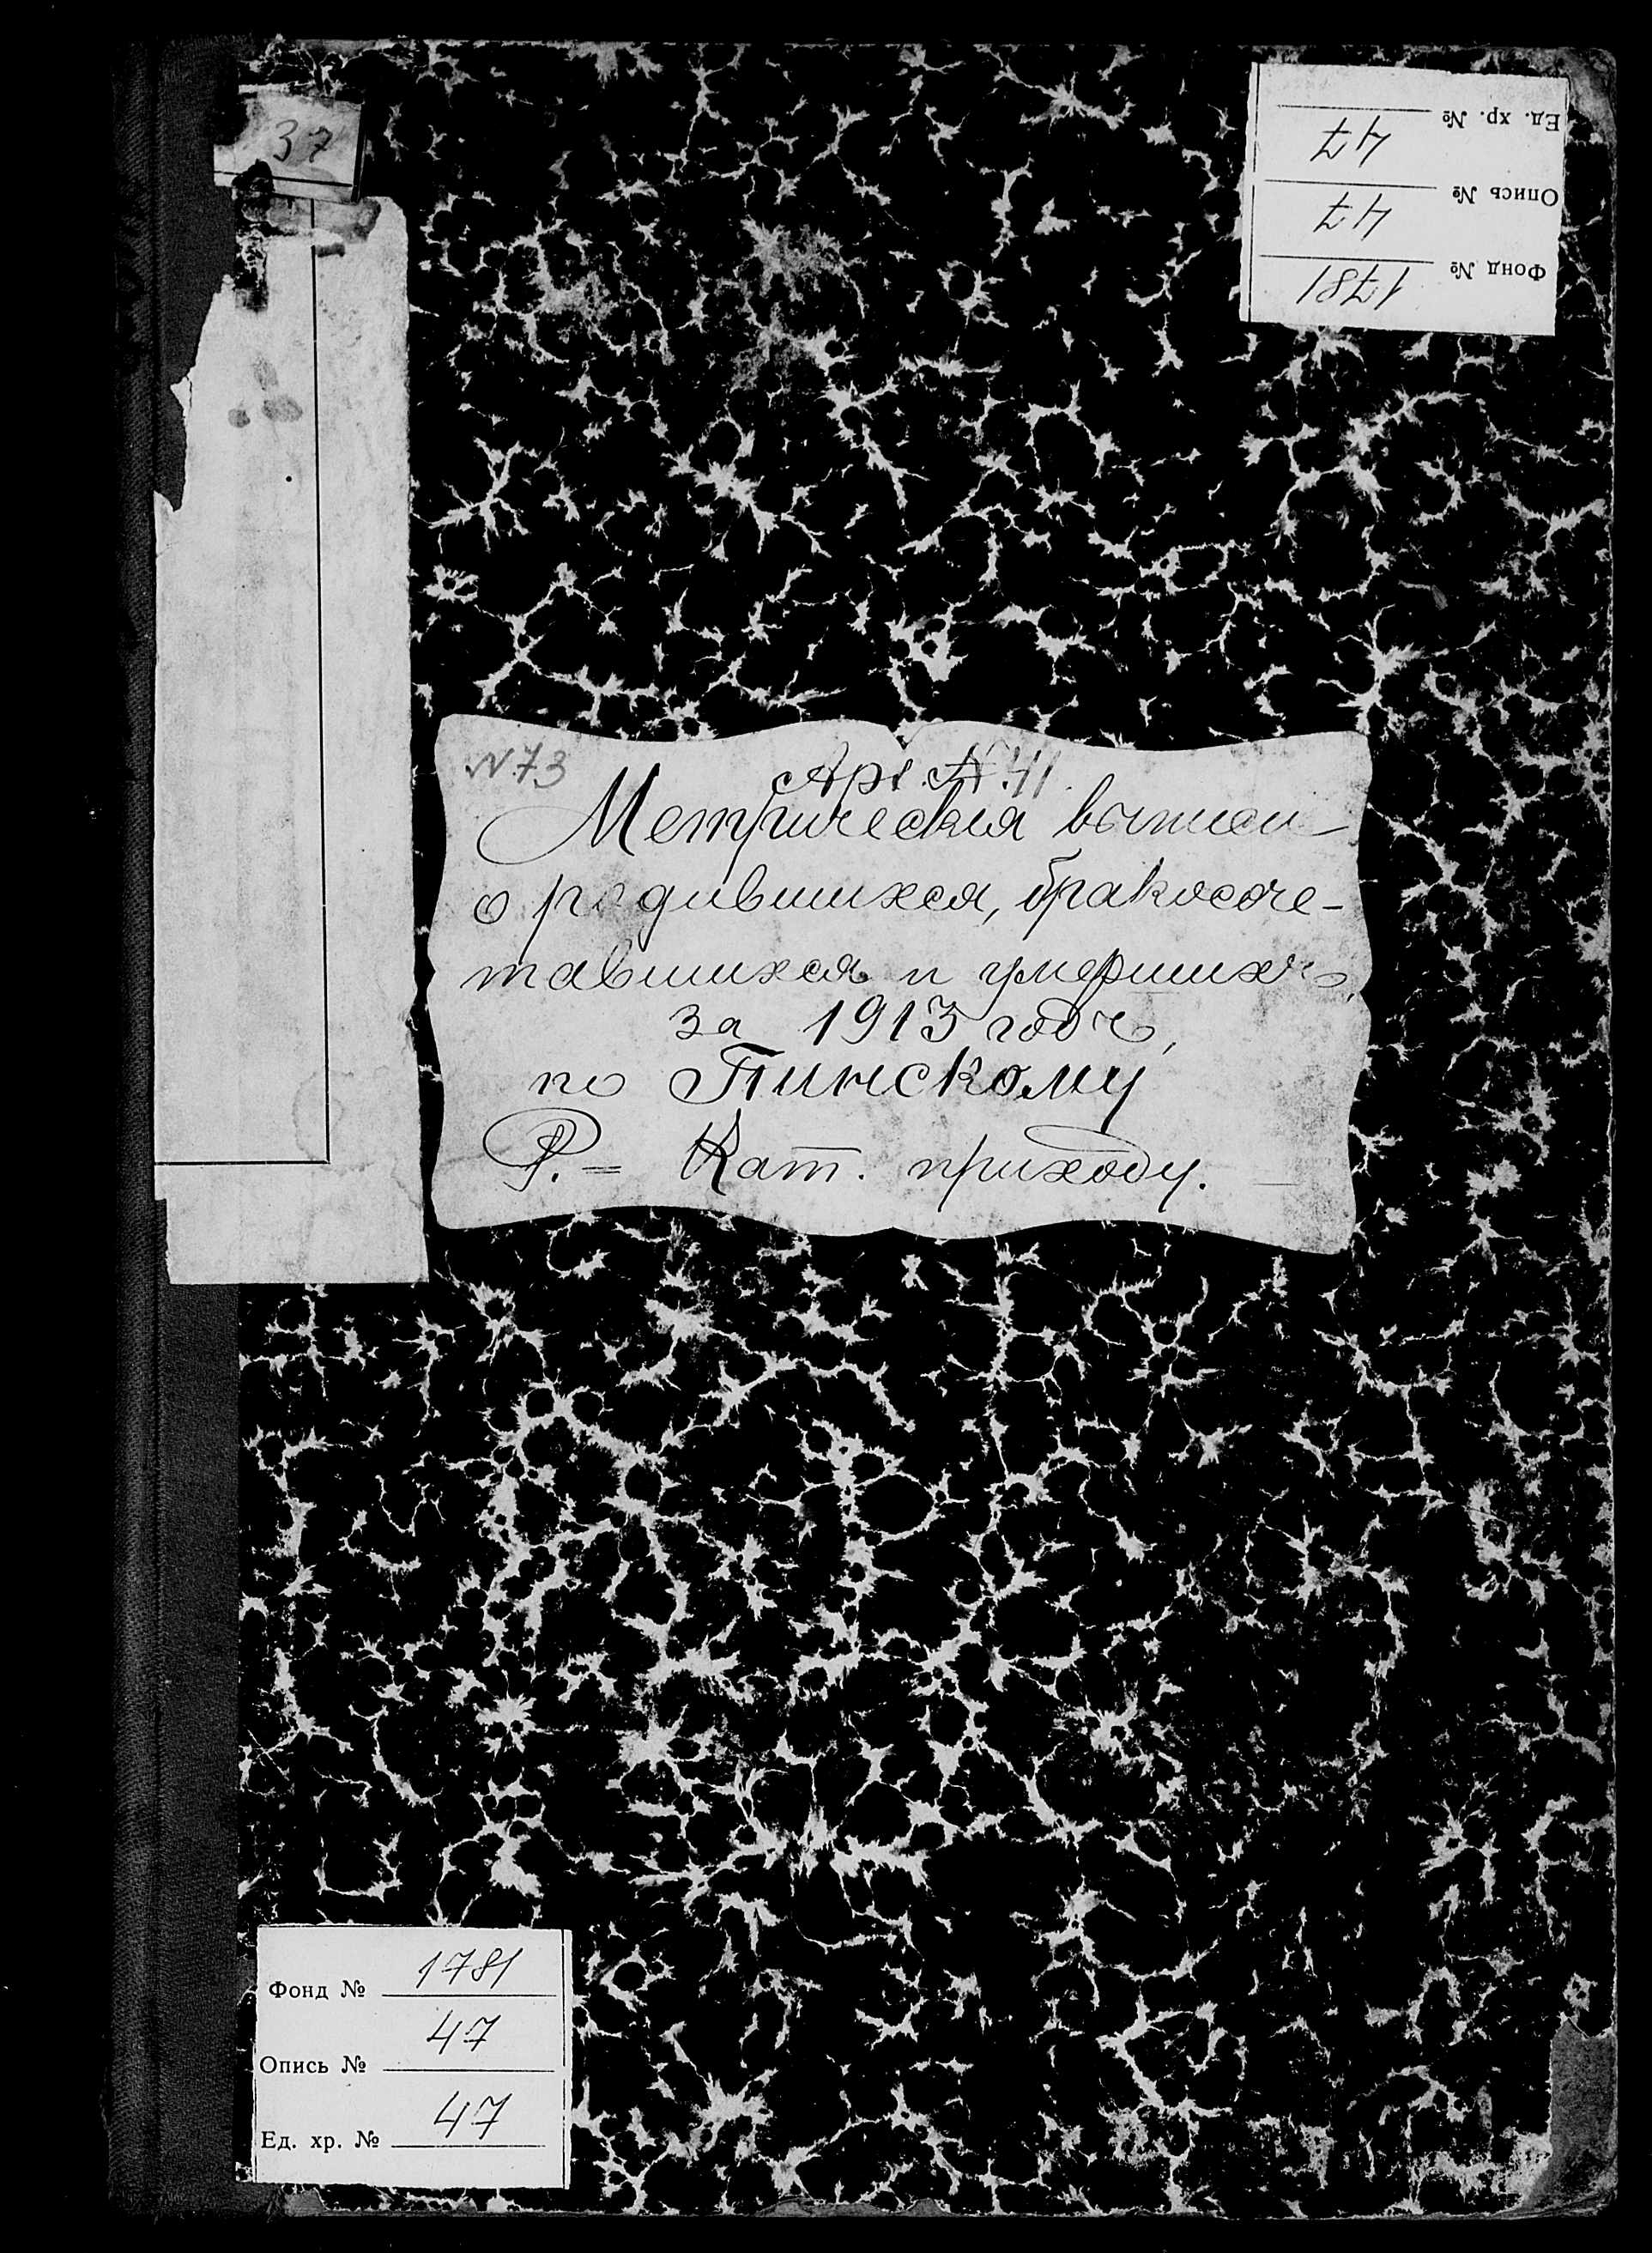 37
Ед. хр. № 47
Опись № 47
Фонд № 1781
N 73
Арх. № 41.
Метрическия выписи
о родившихся, бракосоче-
тавшихся и умершихъ
за 1913 годъ,
по Пинскому
Р. = Кат. приходу.
Фонд № 1781
Опись № 47
Ед. хр. № 47